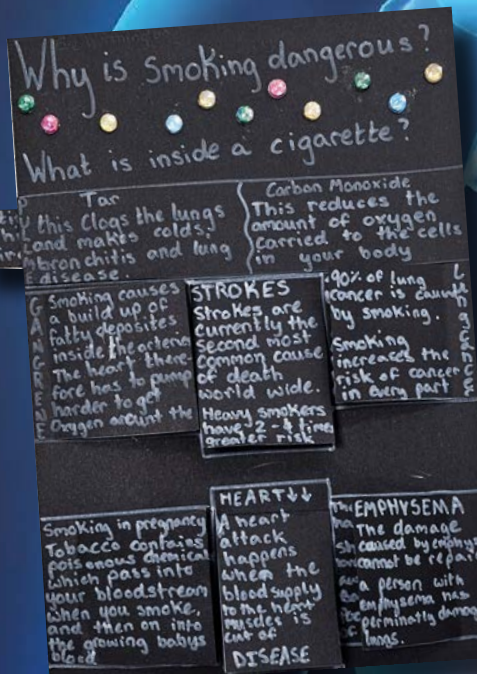 Why is smoking dangerous?
What is inside a cigarette?
Tar
this Clogs the lungs
and makes colds,
bronchitis and lung
disease.
Carbon Monoxide
This reduces the
amount of oxygen
carried to the cells
in your body
GANGRENE
Smoking causes
a build up of
fatty deposites
inside the
The heart there-
fore has to pump
harder to get
Oxygen around the
STROKES
Strokes are
currently the
second most
common cause
of death
world wide.
Heavy smokers
have 2-4 times
greater risk
90% of lung
cancer is
by smoking.
Smoking
increases the
risk of cancer
in every part
Smoking in pregnancy
Tobacco contains
poisonous chemical
which pass into
your bloodstream
when you smoke,
and then on into
the growing babys
blood
HEART↓↓
A heart
attack
happens
when the
blood supply
to the heart
muscles is
cut of
DISEASE
EMPHYSEMA
The damage
caused by emphys
cannot be repair
a person with
emphysema has
perminatly damag
lungs.